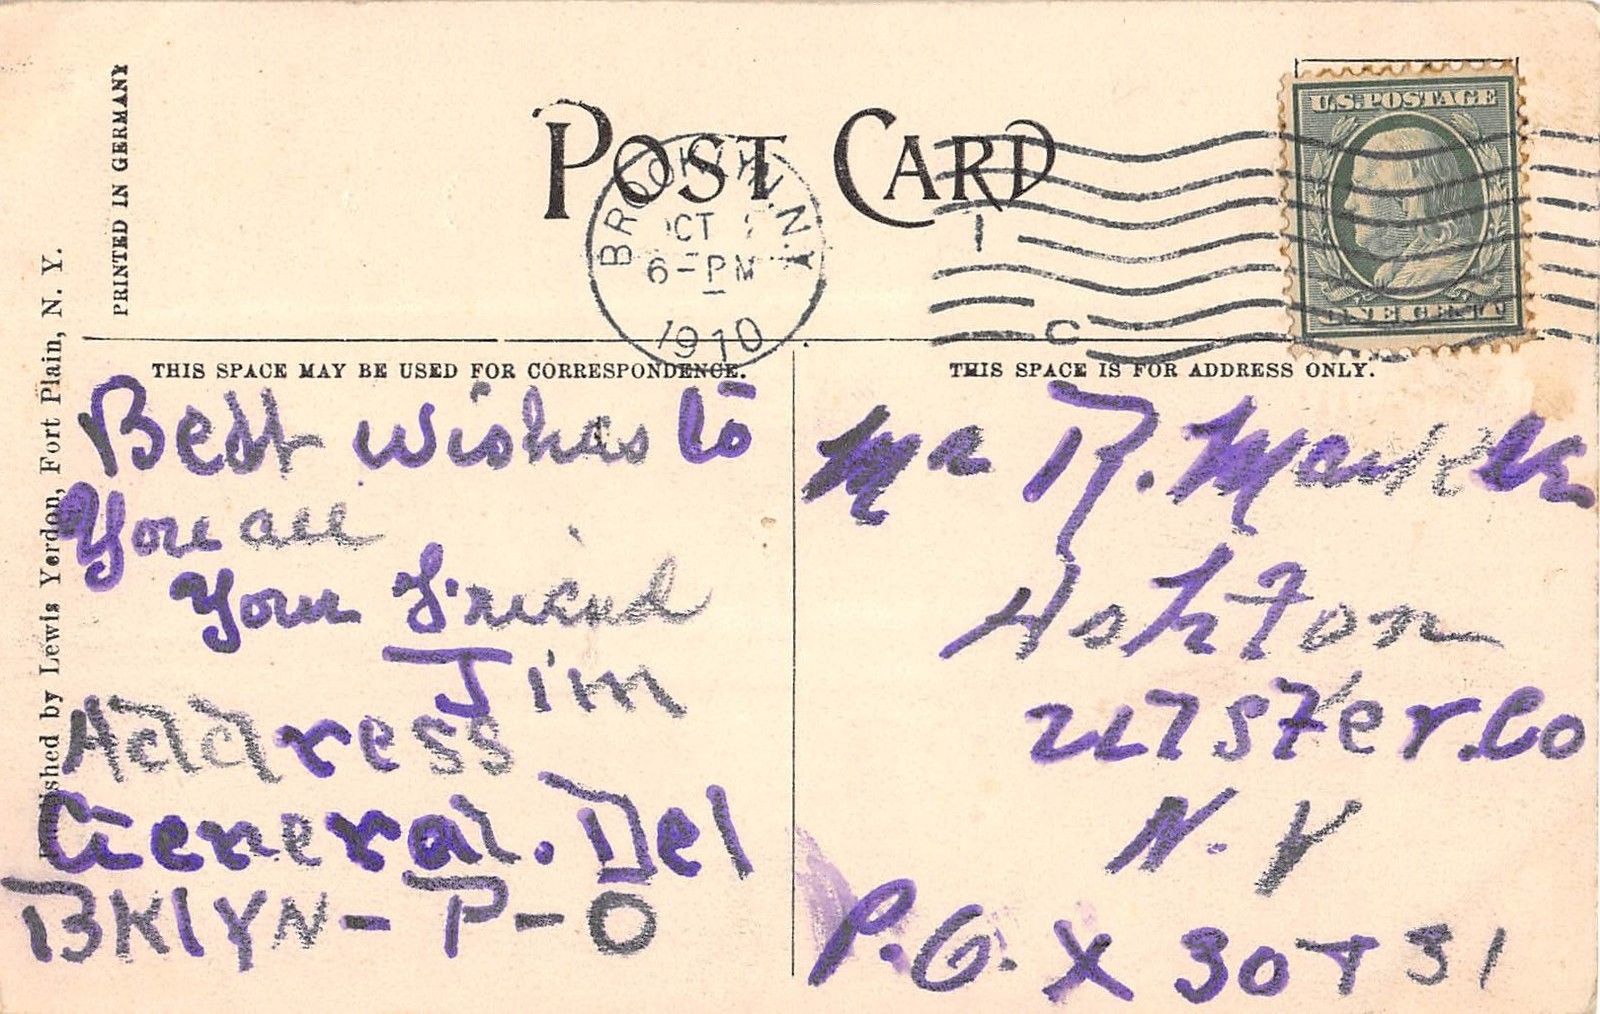 PRINTED IN GERMANY
Published by Lewis Yerdon, Fort Plain, N. Y.
POST CARD
BROOKLYN, N.Y.
OCT
6-PM
1910
C
U.S. POSTAGE
ONE CENT
THIS SPACE MAY BE USED FOR CORRESPONDENCE.
Best wishes to
You all
Your Friend
Jim
Address
General. Del
BKlYN - P-O
THIS SPACE IS FOR ADDRESS ONLY.
Mr R.
Ashton
Ulster. Co
N. Y
P.O. X 30 + 31